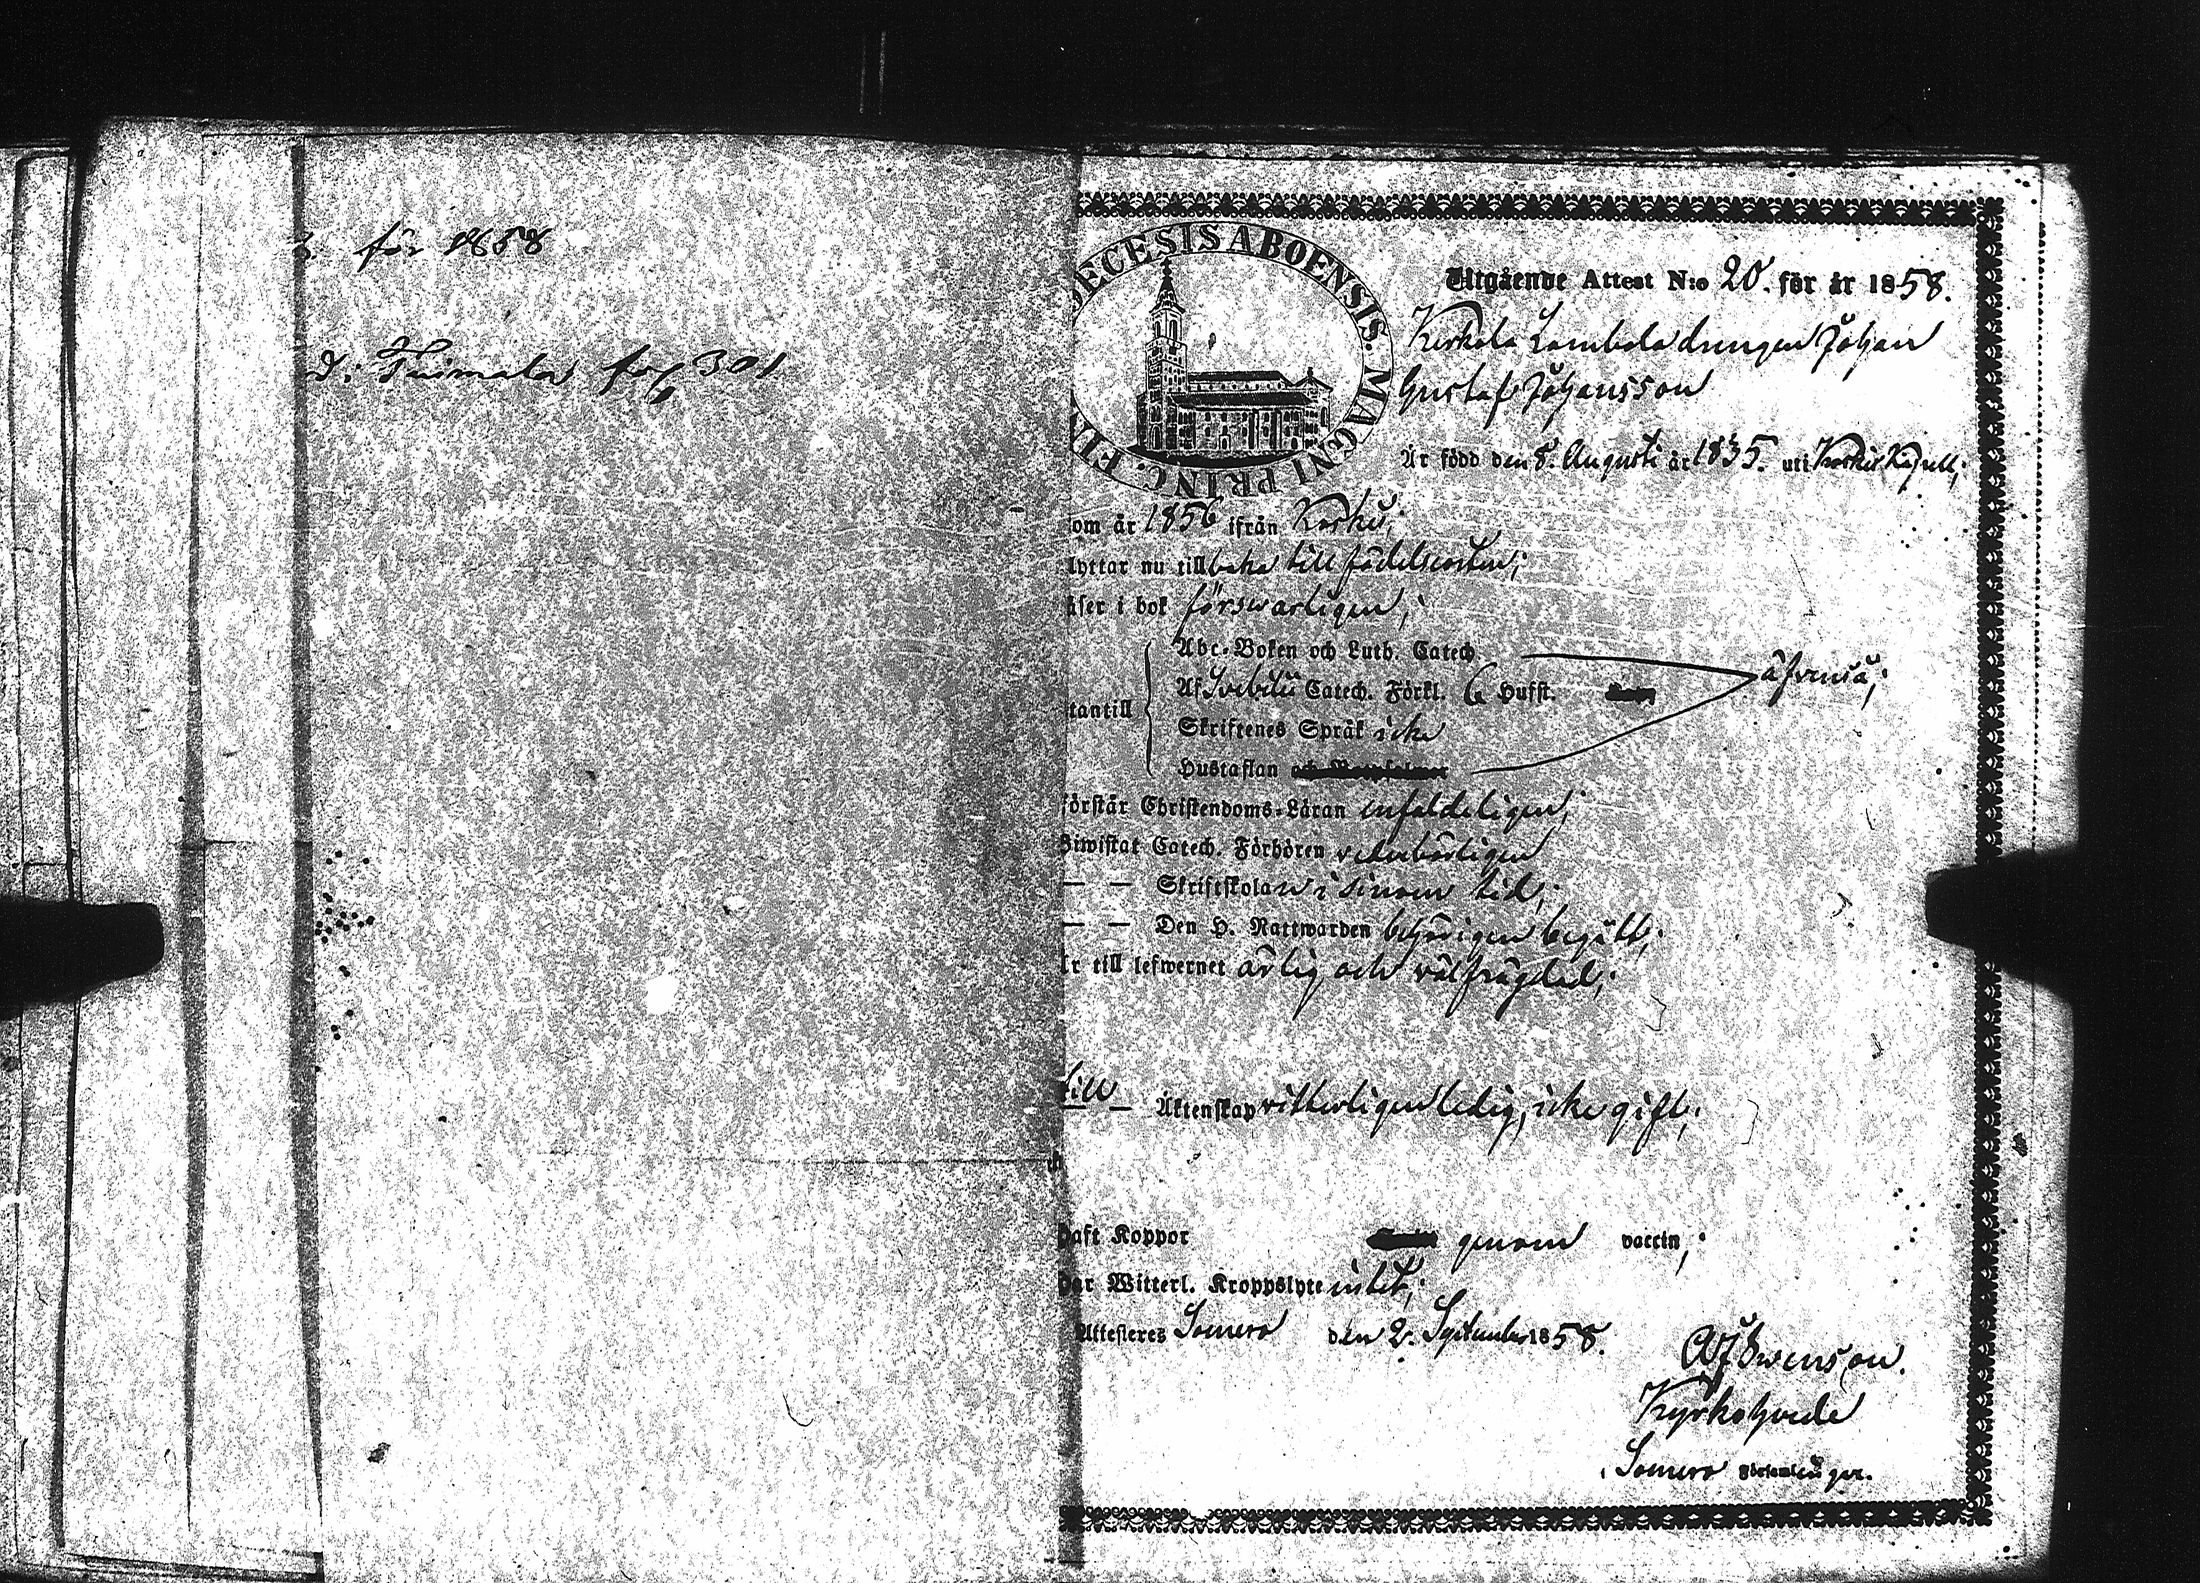 för 1858
pag 301
DECESIS ABOENSIS. MAGNI PRINC. FIN
Utgående Attest N:o 20. för år 1858.
Kerkola Lambola drengen Johan
Gustaf Johansson
Är född den 8. Augusti år 1835. uti Koskis Kapell;
om år 1856 ifrån Koskis;
lyttar nu tillbaka till födelseorten;
äser i bok förswarligen;
Abc-Boken och Luth. Catech.
Af Svebilii Catech. Förkl. 6 Hufst. äfvenså;
tantill
Skriftenes Språk icke
Hustaflan
förstår Christendoms-Läran enfaldeligen;
Biwistat Catech. Förhören vederbörligen
— — Skriftskolan i sinom tid;
— — Den H. Nattwarden behörigen begått;
Är till lefwernet ärlig och välfrägdad;
till
— — Äktenskap vitterligen ledig, icke gift;
Haft Koppor genom vaccin;
Har Witterl. Kroppslyte intet;
Attesteres Somero den 2. September 1858.
Swenson.
Kyrkoherde
i Somero Församlingar.